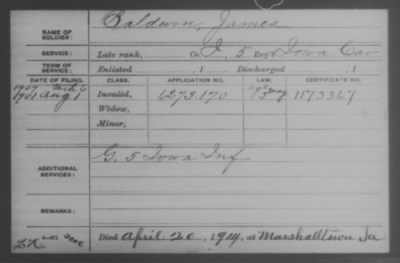 NAME OF SOLDIER: Baldwin, James
SERVICE: Late rank, Co. I, 5 Reg't Iowa Cav
TERM OF SERVICE: Enlisted , 1 Discharged , 1
DATE OF FILING. CLASS. APPLICATION NO. LAW. CERTIFICATE NO.
1907 Mch 6
1901 Aug 1 Invalid, 1273.170 1173367
Widow,
Minor,
ADDITIONAL SERVICES: G. 5 Iowa Inf
REMARKS:
Died April 20, 1914, at Marshalltown Ia